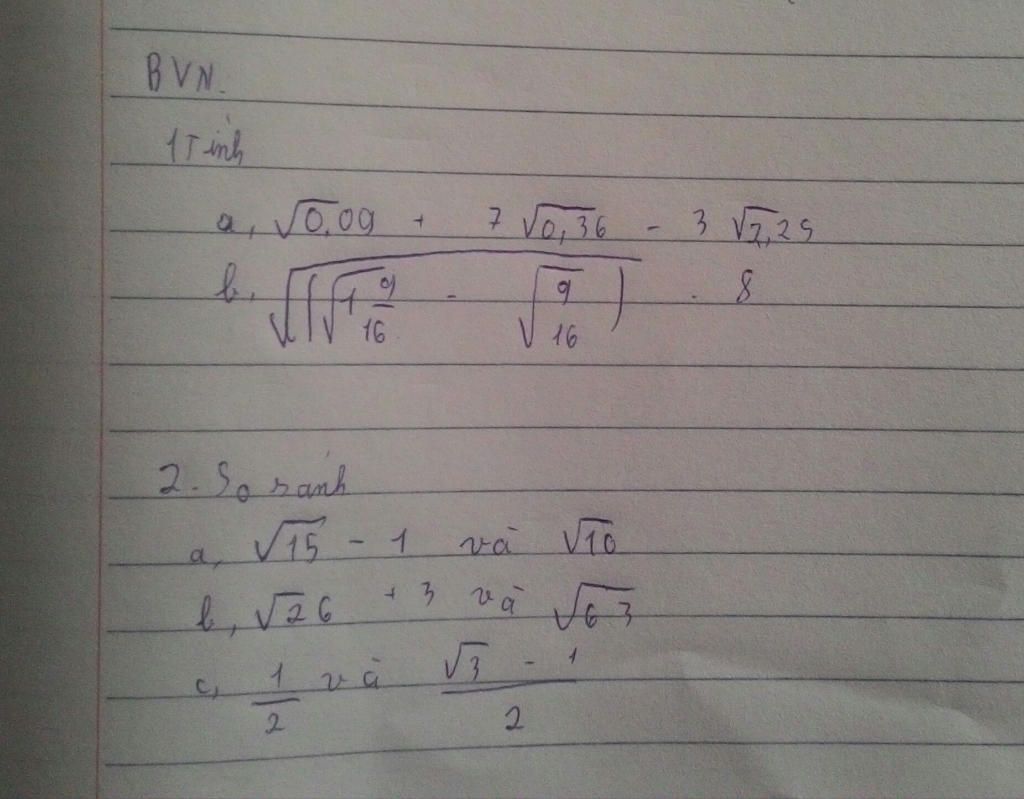 BVN.
1 Tính
a, √0,09 + 7 √0,36 - 3 √2,25
b, √((√1 9/16 - √9/16) . 8
2. So sánh
a, √15 - 1 và √10
b, √26 + 3 và √63
c, 1/2 và (√3 - 1)/2